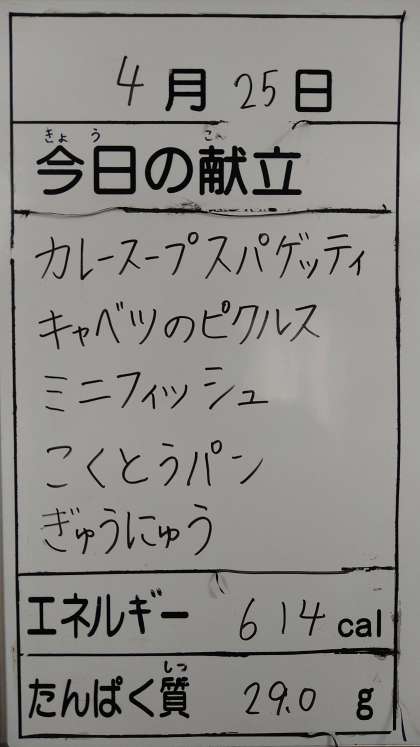 4月25日
今日の献立
カレースープスパゲッティ
キャベツのピクルス
ミニフィッシュ
こくとうパン
ぎゅうにゅう
エネルギー 614 cal
たんぱく質 29.0 g